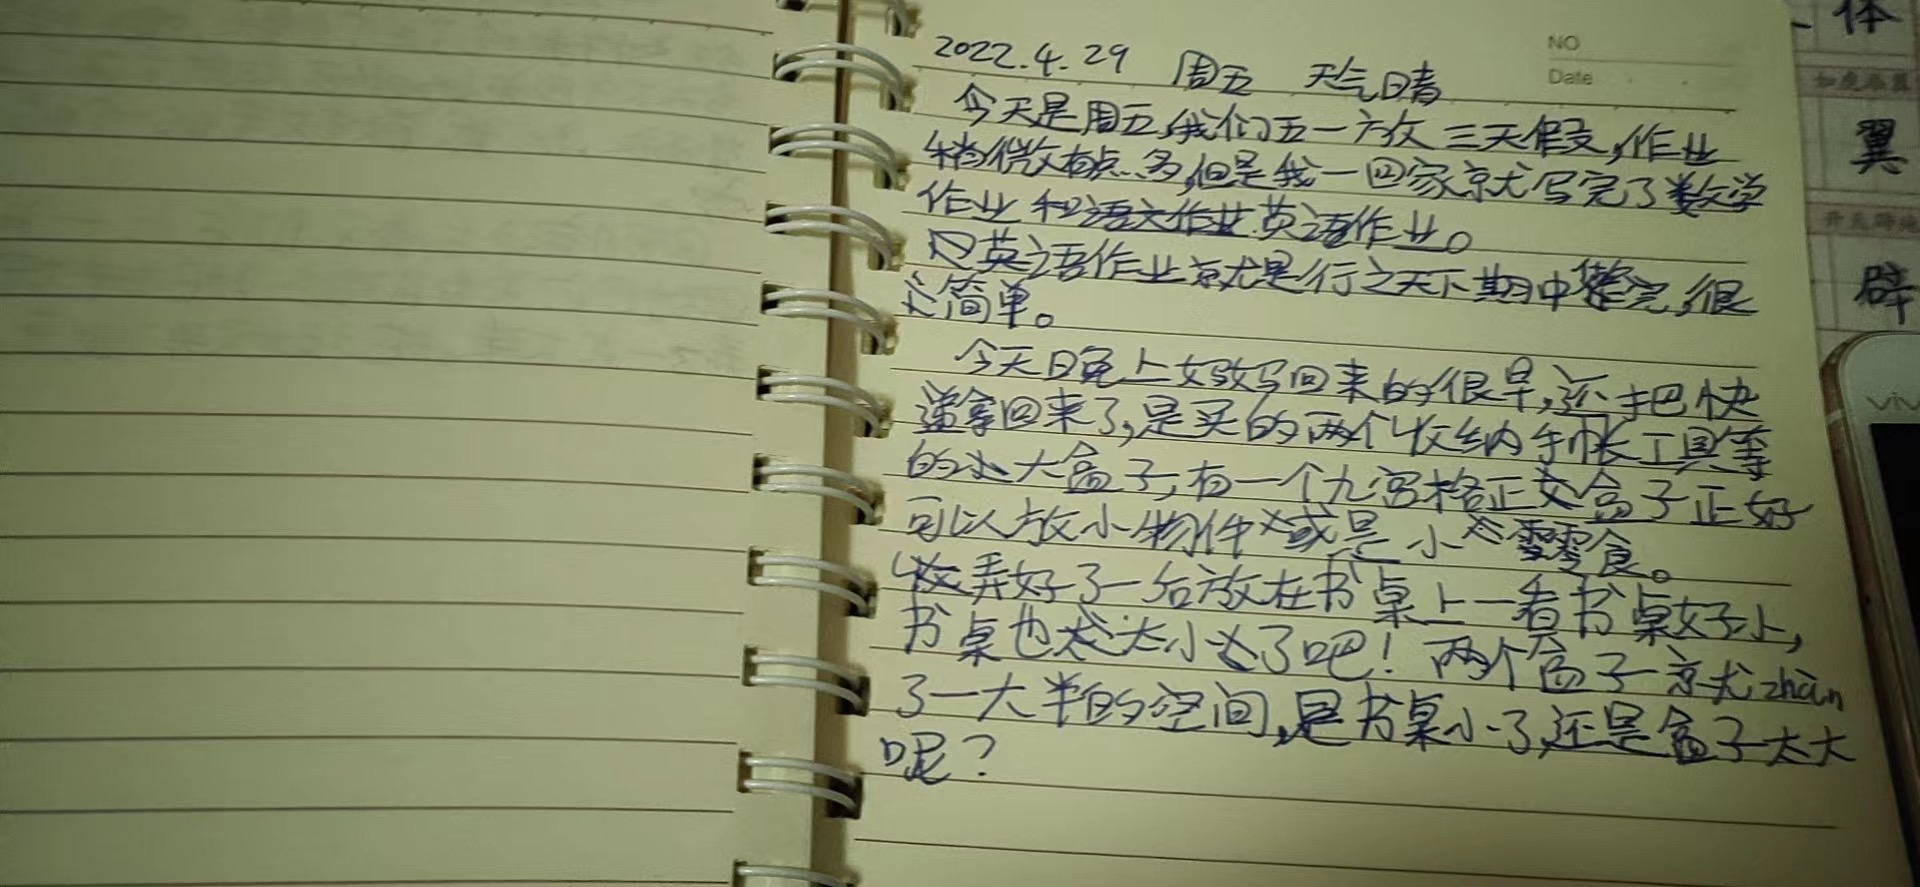 NO
Date
2022.4.29 周五 天气晴
今天是周五,我们五一放三天假,作业
稍微有点多,但是我一回家就写完了数学
作业和语文作业英语作业。
英语作业就是行之天下期中整完,很
简单。
今天晚上妈妈回来的很早,还把快
递拿回来了,是买的两个收纳手帐工具等
的大盒子,有一个九宫格正盒子正好
可以放小物件或是小零食。
收弄好了一后放在书桌上一看书桌好小,
书桌也太小了吧!两个盒子就zhàn
了一大半的空间,是书桌小了还是盒子太大
呢?
体
翼
辟
viv